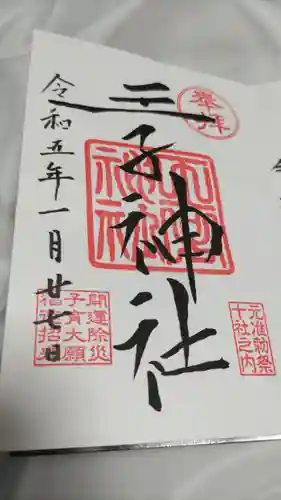 奉拝
王子神社
王子神社
元准勅祭
十社之内
令和五年一月廿七日
開運除災
子育大願
招来